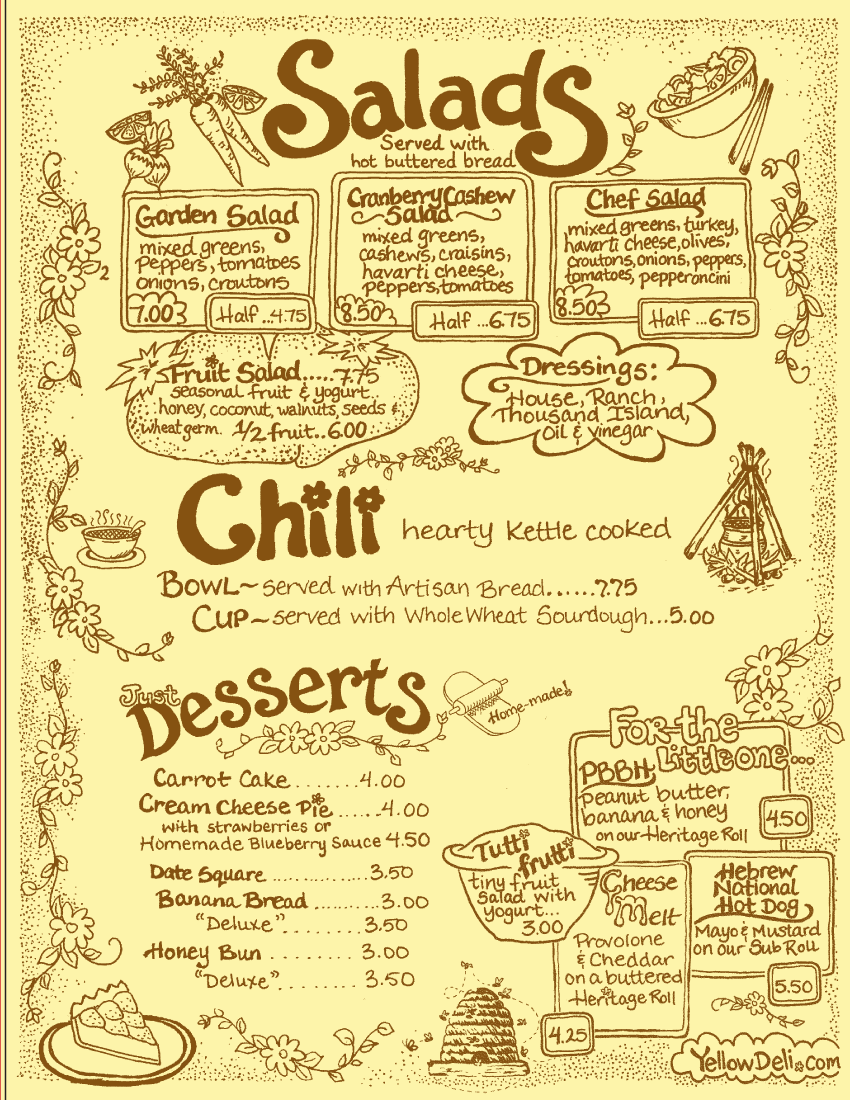 Salads
Served with
hot buttered bread
Garden Salad
mixed greens,
peppers, tomatoes
onions, croutons
7.00
Half ..4.75
2
Cranberry Cashew
Salad
mixed greens,
cashews, craisins,
havarti cheese,
peppers, tomatoes
8.50
Half ...6.75
Chef Salad
mixed greens, turkey,
havarti cheese, olives,
croutons, onions, peppers,
tomatoes, pepperoncini
8.50
Half ...6.75
Fruit Salad.....7.75
seasonal fruit & yogurt
honey, coconut, walnuts, seeds &
wheat germ. 1/2 fruit..6.00
Dressings:
House, Ranch,
Thousand Island,
Oil & Vinegar
Chili hearty kettle cooked
Bowl~served with Artisan Bread......7.75
Cup~served with Whole Wheat Sourdough...5.00
Just
Desserts
Home-made!
Carrot Cake........4.00
Cream Cheese Pie......4.00
with strawberries or
Homemade Blueberry Sauce 4.50
Date Square...............3.50
Banana Bread..............3.00
"Deluxe"..........3.50
Honey Bun............3.00
"Deluxe"..........3.50
For the
Little one...
PBBH
peanut butter,
banana & honey
on our Heritage Roll
4.50
Tutti
frutti
tiny fruit
salad with
yogurt...
3.00
Cheese
Melt
Provolone
& Cheddar
on a buttered
Heritage Roll
4.25
Hebrew
National
Hot Dog
Mayo & Mustard
on our Sub Roll
5.50
YellowDeli.com